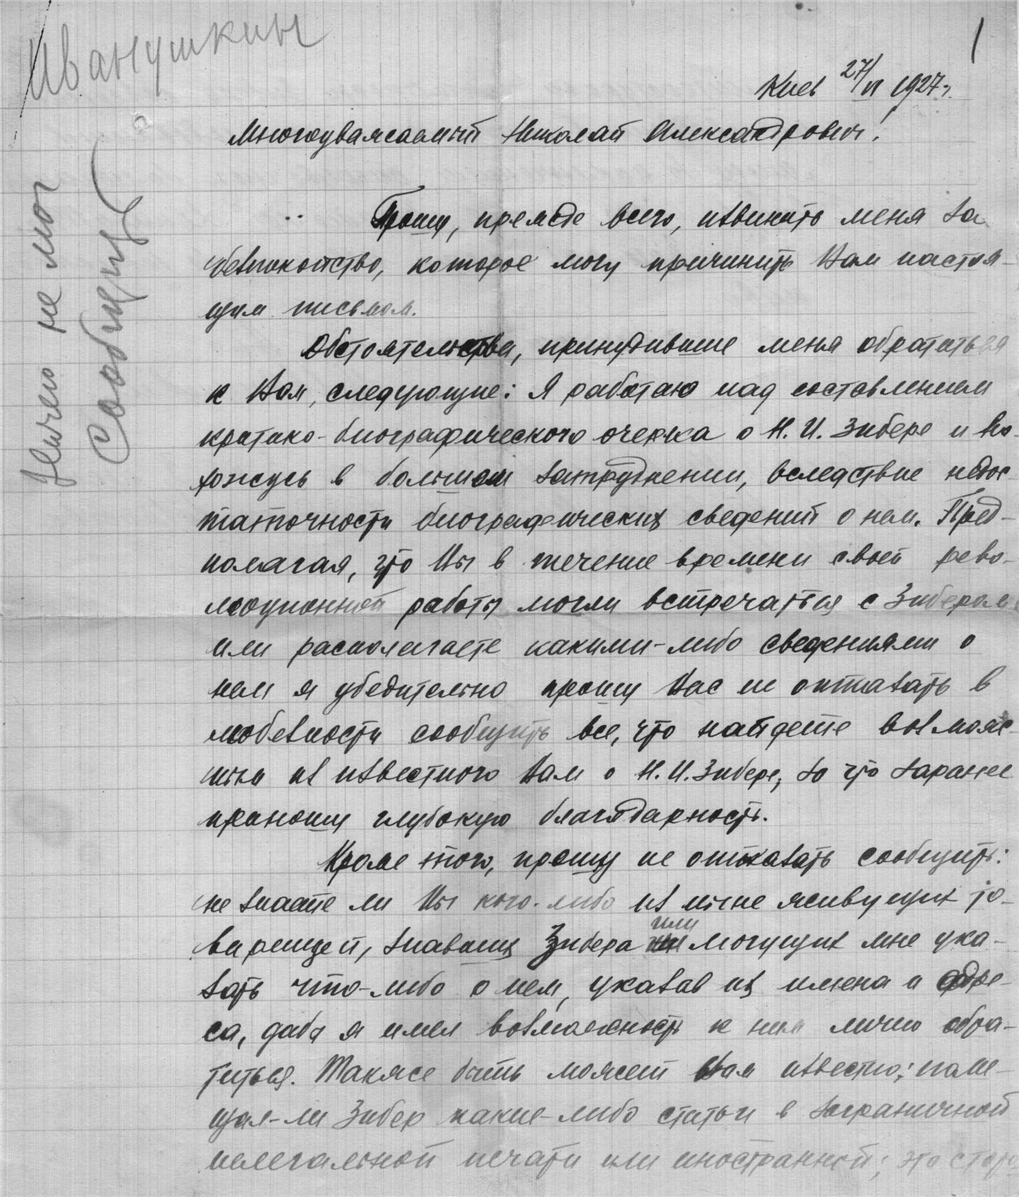 Иванушкин
1
Киев 27/VI 1927 г.
Многоуважаемый Николай Александрович!
Ничего не мог
Сообщить
Прошу, прежде всего, извинить меня за
беспокойство, которое могу причинить Вам настоя-
щим письмом.
Обстоятельства, принудившие меня обратиться
к Вам, следующие: Я работаю над составлением
критико-биографического очерка о Н. И. Зибере и на-
хожусь в большом затруднении, вследствие недос-
таточности биографических сведений о нем. Пред-
полагая, что Вы в течение времени своей рево-
люционной работы могли встречаться с Зибером
или располагаете какими-либо сведениями о
нем я убедительно прошу Вас не отказать в
любезности сообщить все, что найдете возмож-
ным из известного Вам о Н. И. Зибере, за что заранее
приношу глубокую благодарность.
Кроме того, прошу не отказать сообщить:
не знаете ли Вы кого-либо из ныне живущих то-
варищей, знавших Зибера или могущих мне ука-
зать что-либо о нем, указав их имена и адре-
са, дабы я имел возможность к ним лично обра-
титься. Также быть может Вам известно; поме-
щал-ли Зибер какие-либо статьи в заграничной
нелегальной печати или иностранной; это